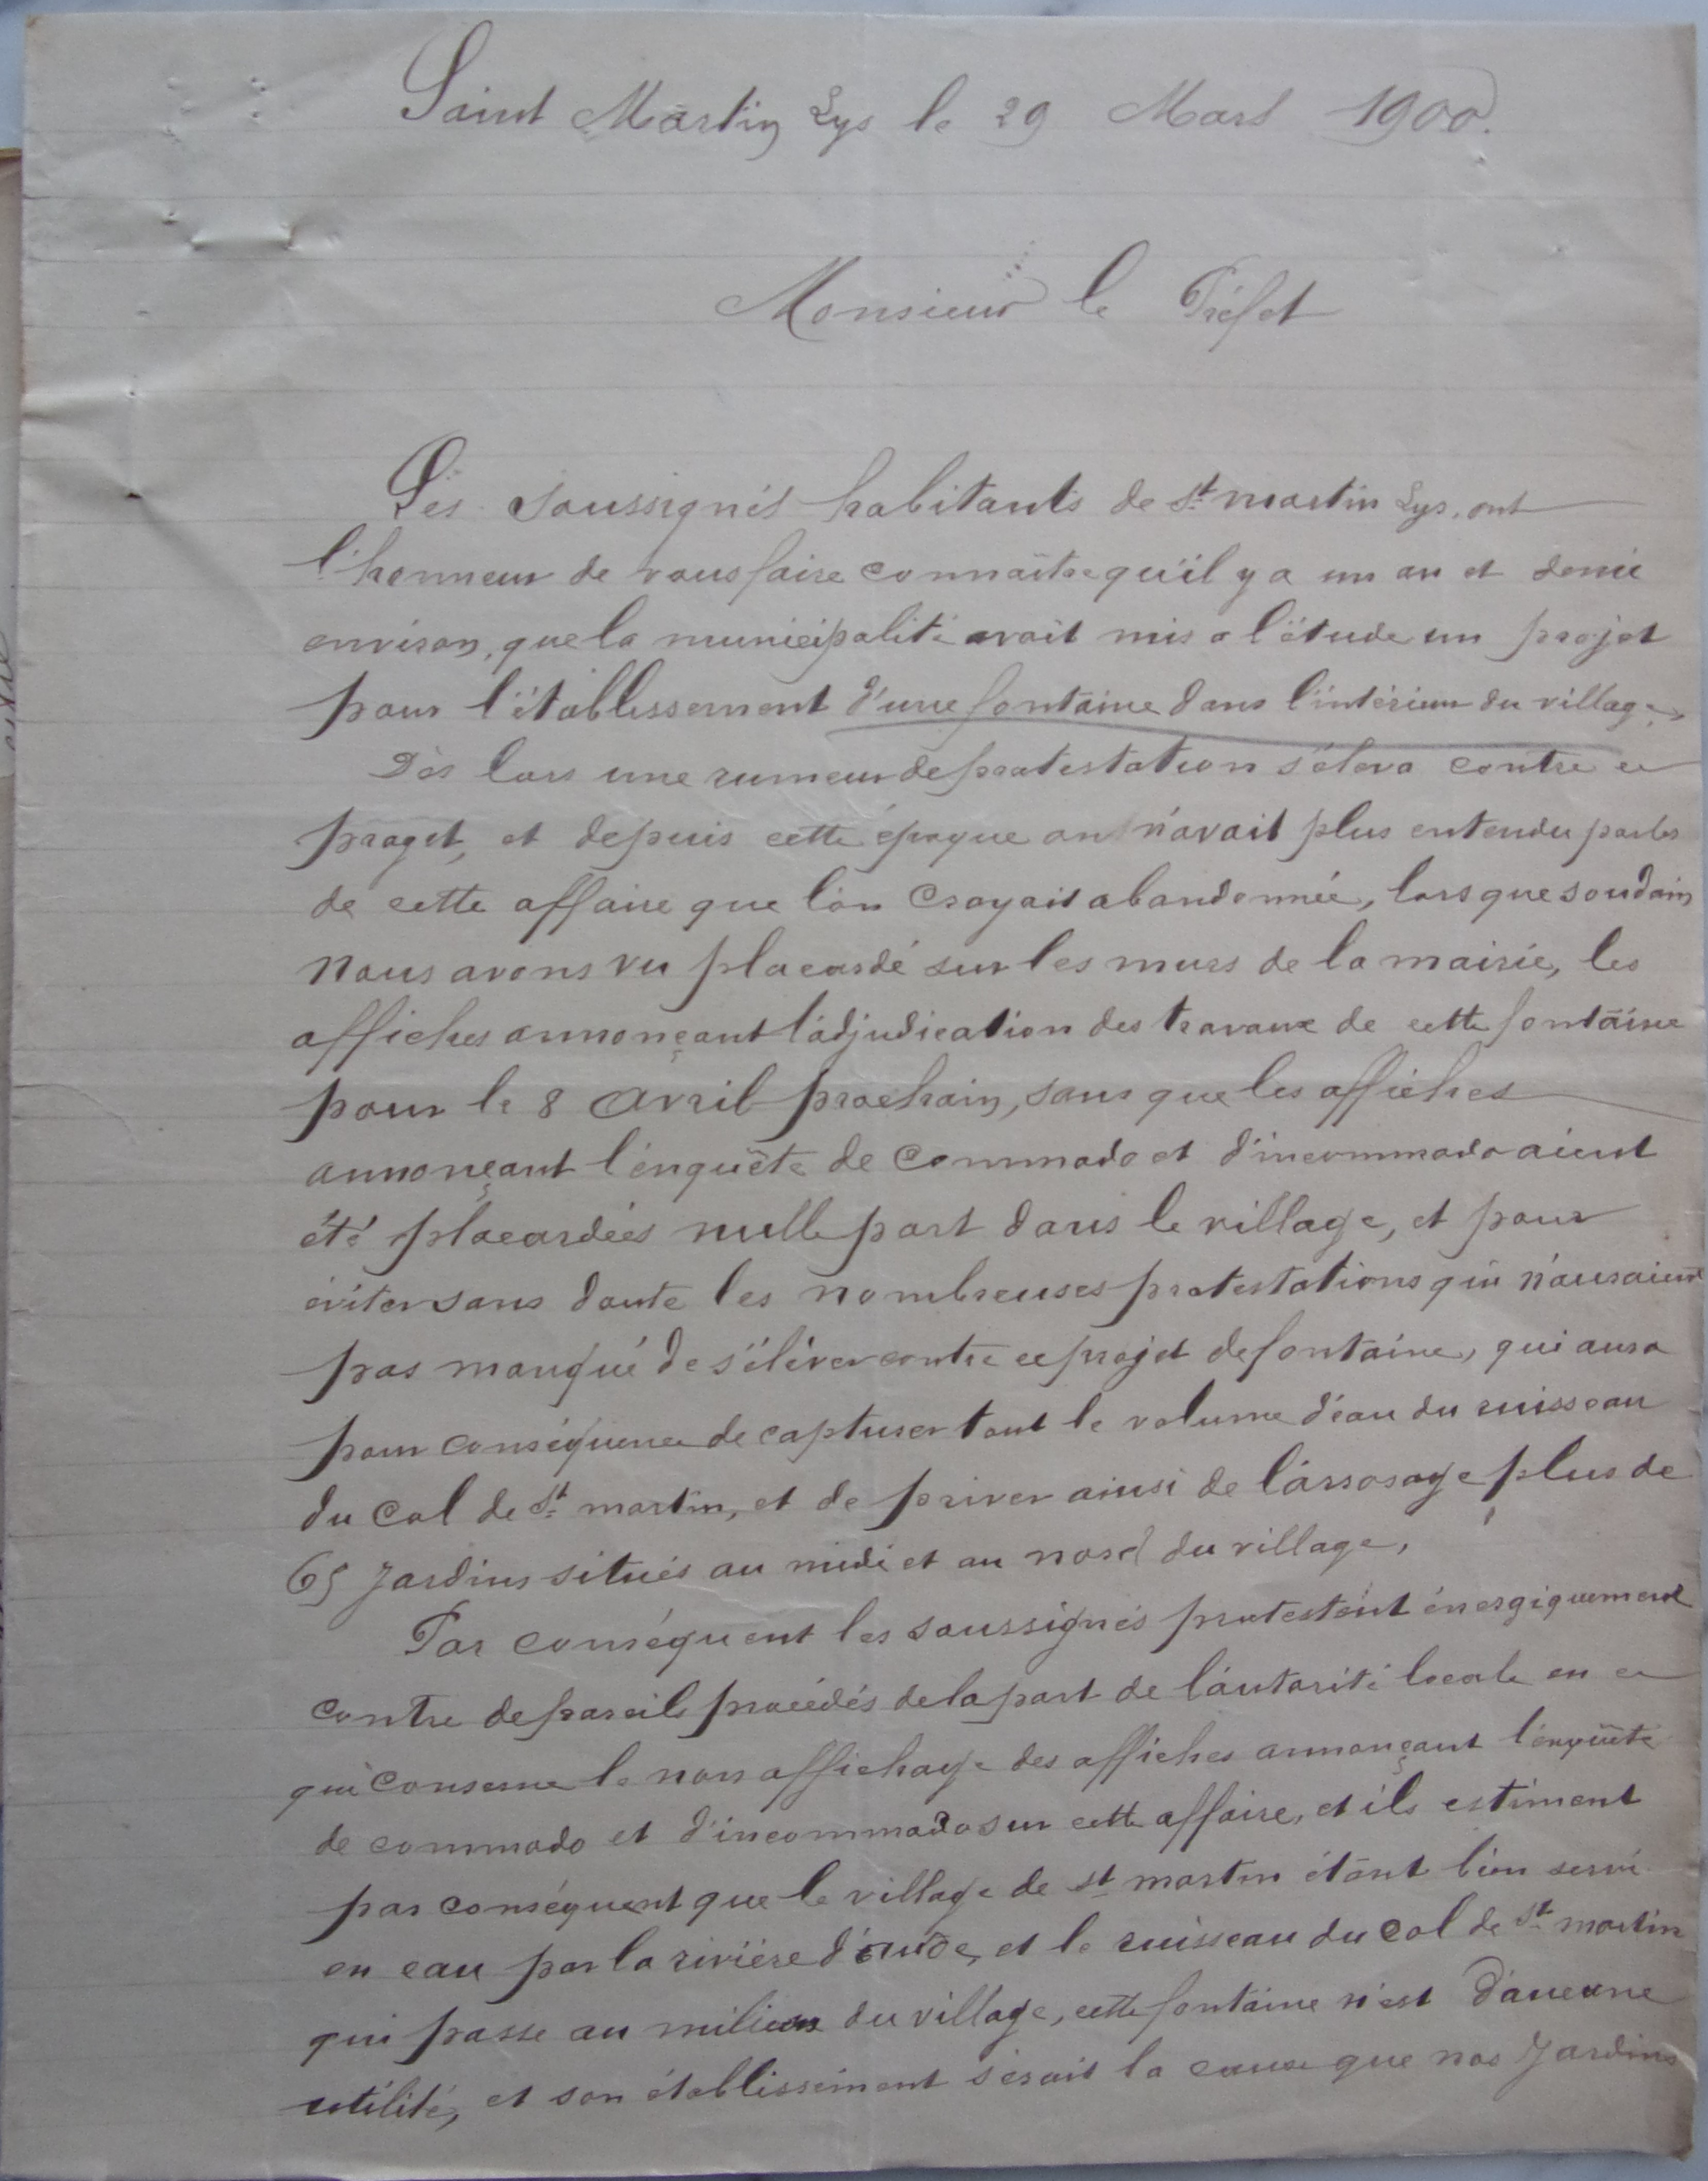 Saint Martin Lys le 29 Mars 1900.
Monsieur le Préfet
Les soussignés habitants de St martin Lys, ont
l'honneur de vous faire connaître qu'il y a un an et demie
environ, que la municipalité avait mis a l'étude un projet
pour l'établissement d'une fontaine dans l'intérieur du village,
Dès lors une rumeur de protestation s'éleva contre ce
proget, et depuis cette époque on n'avait plus entendu parler
de cette affaire que l'on croyait abandonnée, lorsque soudain
nous avons vu placardé sur les murs de la mairie, les
affiches annonçant l'adjudication des travaux de cette fontaine
pour le 8 avril prochain, sans que les affiches
annonçant l'enquête de commodo et d'incommodo aient
été placardées nulle part dans le village, et pour
éviter sans doute les nombreuses protestations qui n'auraient
pas manqué de s'éléver contre ce projet de fontaine, qui aura
pour conséquence de capturer tout le volume d'eau du ruisseau
du Col de St martin, et de priver ainsi de l'arrosage plus de
65 Jardins situés au midi et au nord du village,
Par conséquent les soussignés protestent énergiquement
contre de pareils procédés de la part de l'autorité locale en ce
qui conserne le non affichage des affiches annonçant l'enquête
de commodo et d'incommodo sur cette affaire, et ils estiment
par conséquent que le village de St martin étant bien servi
en eau par la rivière d'aude, et le ruisseau du Col de St martin
qui passe au milieu du village, cette fontaine n'est d'aucune
utilité, et son établissement serait la cause que nos Jardins